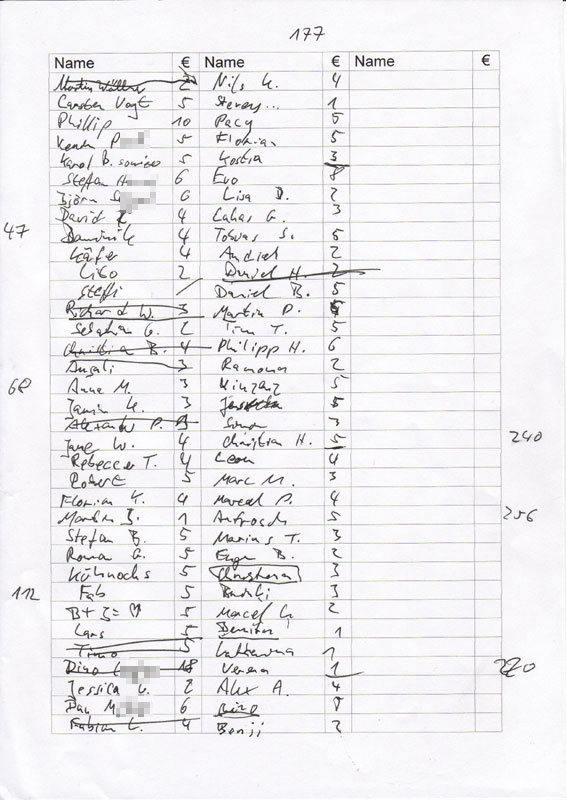 177
Name € Name € Name €
Martin 2 Nils K. 4
Carsten Vogt 5 Steven... 1
Phillip 10 Pacy 5
Kevin P 5 Florian 5
Karol B. 5 Kostia 3
Stefan H 6 Evo 8
Björn S 6 Lisa D. 2
David 4 Lukas G. 3
47 Dominik 4 Tobias S. 5
Käfer 4 Andrel 2
Libo 2 Daniel H. 2
Steffi / Daniel B. 5
Richard W. 3 Martin P.
Sebastian G. 2 Timm T. 5
Christian B. 4 Philipp H. 6
Angeli 3 Ramona 2
68 Anna M. 3 5
Jamin K. 3 5
Alexander P. 3 3
Jane W. 4 Christian H. 5 240
Rebecca T. 4 Leon 4
Robert 5 Marc M. 3
Florian K. 4 Marcel P. 4
Martin J. 1 5 256
Stefan B. 5 Marius T. 3
Roman G. 5 B. 2
Kühnochs 5 3
112 Fab 5 3
B+J=♡ 5 Marcel 2
Lars 5 1
Timo 5 1
Dino 18 Verena 1 270
Jessica 2 Alex A. 4
Dan M 6 8
Fabian L. 4 Benji 2